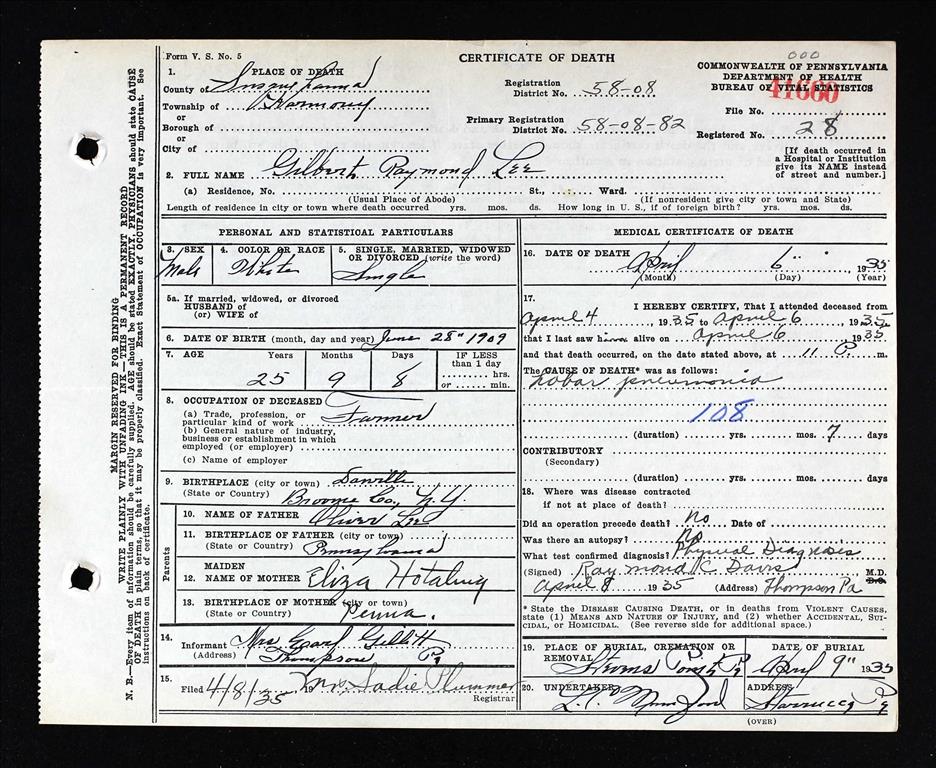 Form V. S. No. 5
CERTIFICATE OF DEATH
000
COMMONWEALTH OF PENNSYLVANIA
DEPARTMENT OF HEALTH
BUREAU OF VITAL STATISTICS
41660
1. PLACE OF DEATH
County of Susquehanna
Township of Harmony
or
Borough of
or
City of
Registration District No. 58-08
Primary Registration District No. 58-08-82
File No.
Registered No. 28
[If death occurred in a Hospital or Institution give its NAME instead of street and number.]
2. FULL NAME Gilbert Raymond Lee
(a) Residence, No. St., Ward.
(Usual Place of Abode) (If nonresident give city or town and State)
Length of residence in city or town where death occurred yrs. mos. ds. How long in U. S., if of foreign birth? yrs. mos. ds.
PERSONAL AND STATISTICAL PARTICULARS
3. SEX Male
4. COLOR OR RACE White
5. SINGLE, MARRIED, WIDOWED OR DIVORCED (write the word) Single
5a. If married, widowed, or divorced
HUSBAND of
(or) WIFE of
6. DATE OF BIRTH (month, day and year) June 28" 1909
7. AGE Years Months Days IF LESS than 1 day
25 9 8 hrs. or min.
8. OCCUPATION OF DECEASED
(a) Trade, profession, or particular kind of work Farmer
(b) General nature of industry, business or establishment in which employed (or employer)
(c) Name of employer
9. BIRTHPLACE (city or town) Danville
(State or Country) Broome Co., N.Y.
Parents
10. NAME OF FATHER Oliver Lee
11. BIRTHPLACE OF FATHER (city or town)
(State or Country) Pennsylvania
12. MAIDEN NAME OF MOTHER Eliza Hotaling
13. BIRTHPLACE OF MOTHER (city or town)
(State or Country) Penna.
14. Informant Mrs
(Address) Thompson Pa
15. Filed 4/8/35 19 Mrs Sadie Plummer
Registrar
MEDICAL CERTIFICATE OF DEATH
16. DATE OF DEATH April 6" 1935
(Month) (Day) (Year)
17. I HEREBY CERTIFY, That I attended deceased from
April 4, 1935 to April 6, 1935
that I last saw him alive on April 6 1935
and that death occurred, on the date stated above, at 11 P. m.
The CAUSE OF DEATH* was as follows:
Lobar pneumonia
108
(duration) yrs. mos. 7 days
CONTRIBUTORY
(Secondary)
(duration) yrs. mos. days
18. Where was disease contracted
if not at place of death?
Did an operation precede death? No Date of
Was there an autopsy? No
What test confirmed diagnosis? Physical Diagnosis
(Signed) Raymond C Davis M.D. D.O.
April 8 1935 (Address) Thompson Pa
* State the DISEASE CAUSING DEATH, or in deaths from VIOLENT CAUSES, state (1) MEANS AND NATURE OF INJURY, and (2) whether ACCIDENTAL, SUICIDAL, or HOMICIDAL. (See reverse side for additional space.)
19. PLACE OF BURIAL, CREMATION OR REMOVAL
DATE OF BURIAL
April 9" 1935
20. UNDERTAKER
ADDRESS
Starrucca Pa
(OVER)
MARGIN RESERVED FOR BINDING
WRITE PLAINLY WITH UNFADING INK—THIS IS A PERMANENT RECORD
N. B.—Every item of information should be carefully supplied. AGE should be stated EXACTLY. PHYSICIANS should state CAUSE
OF DEATH in plain terms, so that it may be properly classified. Exact Statement of OCCUPATION is very important. See
instructions on back of certificate.